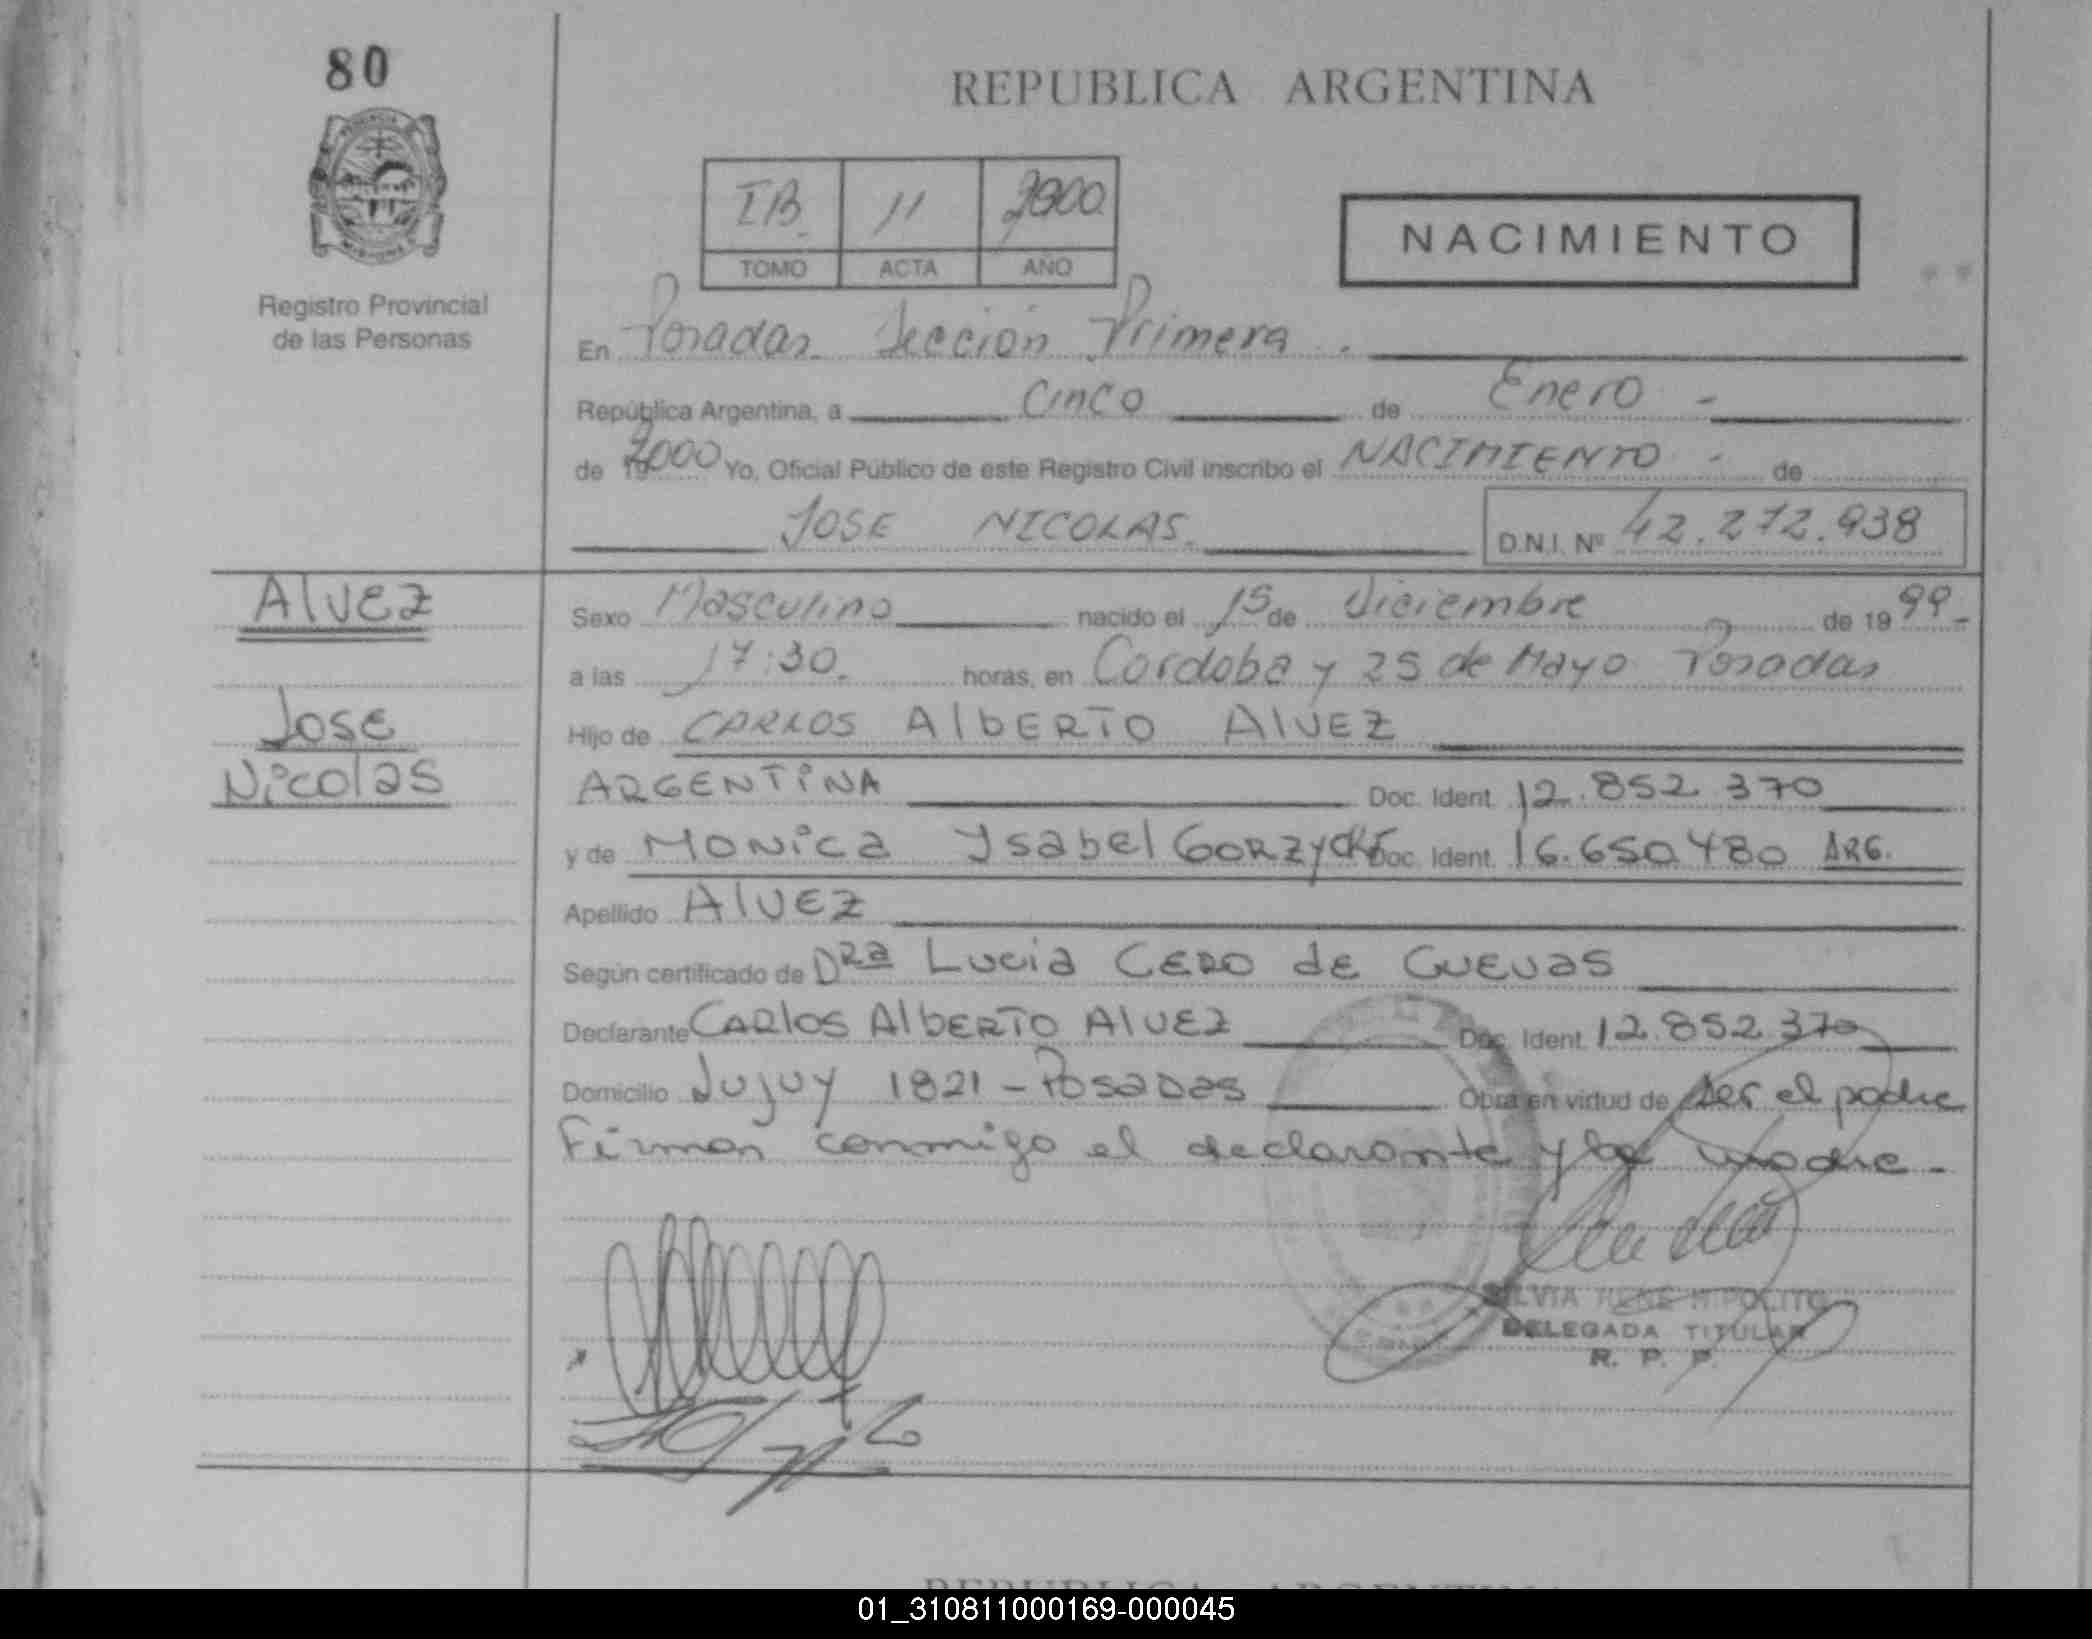 80
REPUBLICA ARGENTINA
IB 11 2000
TOMO ACTA AÑO
NACIMIENTO
Registro Provincial
de las Personas
En Posadas Sección Primera.
República Argentina, a Cinco de Enero -
de 2000 Yo, Oficial Público de este Registro Civil inscribo el NACIMIENTO - de
JOSE NICOLAS. D.N.I. Nº 42.272.938
Alvez
Sexo Masculino nacido el 15 de Diciembre de 1999-
a las 17:30. horas, en Cordoba y 25 de Mayo Posadas
Jose
Hijo de CARLOS AlbERTO AlVEZ
Nicolas
ARGENTiNA Doc. Ident. 12.852.370
y de MONica Ysabel GORZycki Doc. Ident. 16.650.480 ARG.
Apellido AlVEZ
Según certificado de DRa Lucia CERO de CUEVas
Declarante CARlos AlbERTO AlVEZ Doc. Ident. 12.852.370
Domicilio Jujuy 1821 - Posadas Obra en virtud de ser el padre
Firman conmigo el declarante y la madre -
SILVIA IRENE HIPOLITO
DELEGADA TITULAR
R. P. P.
REPUBLICA ARGENTINA
01_310811000169-000045